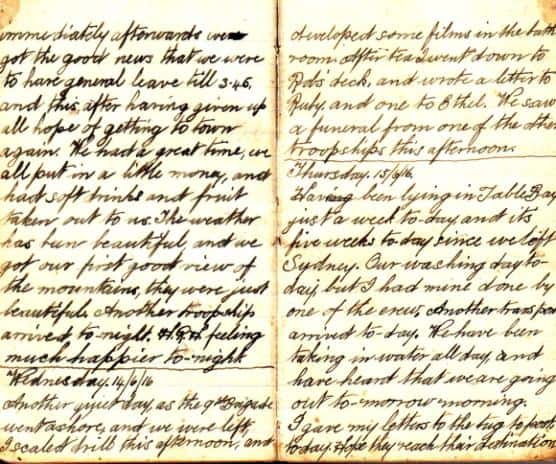 immediately afterwards we
got the good news that we were
to have general leave till 3.45,
and this after having given up
all hope of getting to town
again. We had a great time, we
all put in a little money, and
had soft drinks and fruit
taken out to us. The weather
has been beautiful, and we
got our first good view of
the mountains, they were just
beautiful. Another troopship
arrived to-night. feeling
much happier to-night.
Wednesday. 14/6/16
Another quiet day, as the 9th Brigade
went ashore, and we were left,
I scaled drill this afternoon, and
developed some films in the bath
room. After tea I went down to
Rds' deck, and wrote a letter to
Ruby and one to Ethel. We saw
a funeral from one of the other
troopships this afternoon.
Thursday. 15/6/16.
Having been lying in Table Bay
just a week to-day and its
five weeks to-day since we left
Sydney. Our washing day to-
day, but I had mine done by
one of the crew, Another transport
arrived to-day. We have been
taking in water all day, and
have heard that we are going
out to-morrow morning.
I gave my letters to the tug to post
to day. Hope they reach their destination